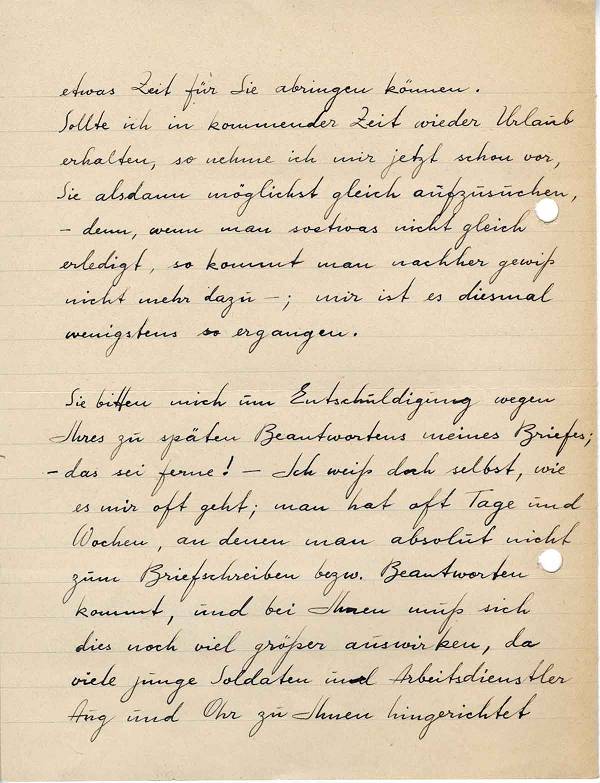 etwas Zeit für Sie abringen können.
Sollte ich in kommender Zeit wieder Urlaub
erhalten, so nehme ich mir jetzt schon vor,
Sie alsdann möglichst gleich aufzusuchen,
- denn, wenn man soetwas nicht gleich
erledigt, so kommt man nachher gewiß
nicht mehr dazu -; mir ist es diesmal
wenigstens so ergangen.
Sie bitten mich um Entschuldigung wegen
Ihres zu späten Beantwortens meines Briefes;
- das sei ferne! - Ich weiß doch selbst, wie
es mir oft geht; man hat oft Tage und
Wochen, an denen man absolut nicht
zum Briefschreiben bezw. Beantworten
kommt, und bei Ihnen muß sich
dies noch viel größer auswirken, da
viele junge Soldaten und Arbeitsdienstler
Aug und Ohr zu Ihnen hingerichtet